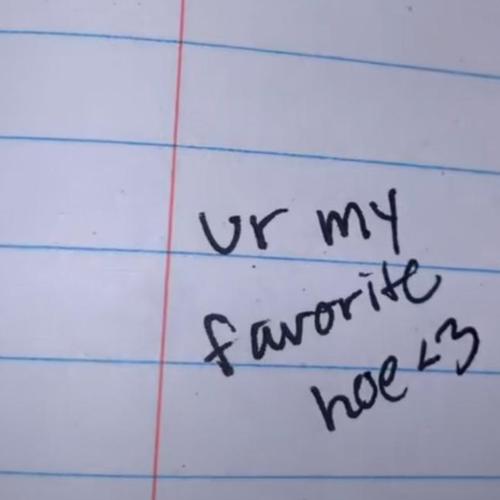 ur my
favorite
hoe <3